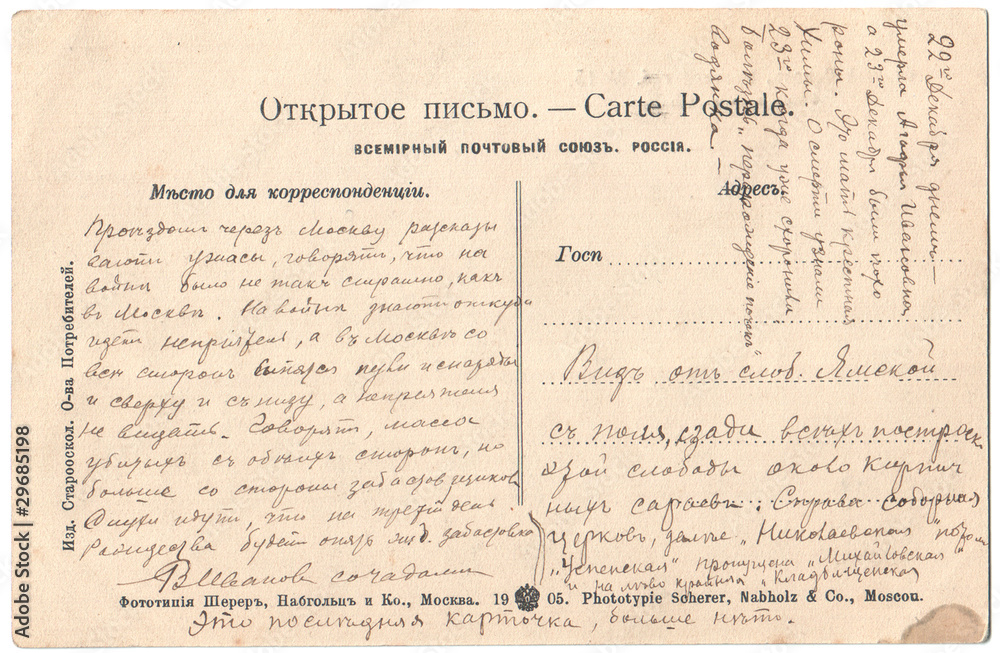 Открытое письмо. — Carte Postale.
ВСЕМІРНЫЙ ПОЧТОВЫЙ СОЮЗЪ. РОССІЯ.
Мѣсто для корреспонденціи.
Адресъ.
Госп
Изд. Старооскол. О-ва Потребителей.
Проѣздом черезъ Москву разсказы
ваютъ ужасы, говорятъ, что на
войнѣ было не такъ страшно, какъ
въ Москвѣ. На войнѣ знаютъ откуда
идетъ непріятель, а въ Москвѣ со
всѣх сторон пули и снаряды
и сверху и снизу, а непріятеля
не видать. Говорятъ, масса
убитыхъ съ обѣихъ сторонъ, но
больше со стороны забастовщиков
Слухи идутъ, что на третій день
Рождества будетъ опять забастовка
ВИванов
22го Декабря днемъ —
умерла Агафья Ивановна,
а 23го Декабря были похо
роны. Это мать крестная
Химы. О смерти узнали
23го когда уже схоронили
болѣзнь „перерожденіе почекъ"
водянка —
Видъ отъ слоб. Ямской
съ поля, сзади всѣхъ построек
этой слободы около кирпич
ныхъ сараевъ. Справа соборная
церковь, далѣе „Николаевская"
„Успенская" пропущена „Михайловская"
и на лѣво крайняя „Кладбищенская
Фототипія Шереръ, Набгольцъ и Ко., Москва. 19 05. Phototypie Scherer, Nabholz & Co., Moscou.
Это послѣдняя карточка, больше нѣтъ.
Adobe Stock | #29685198